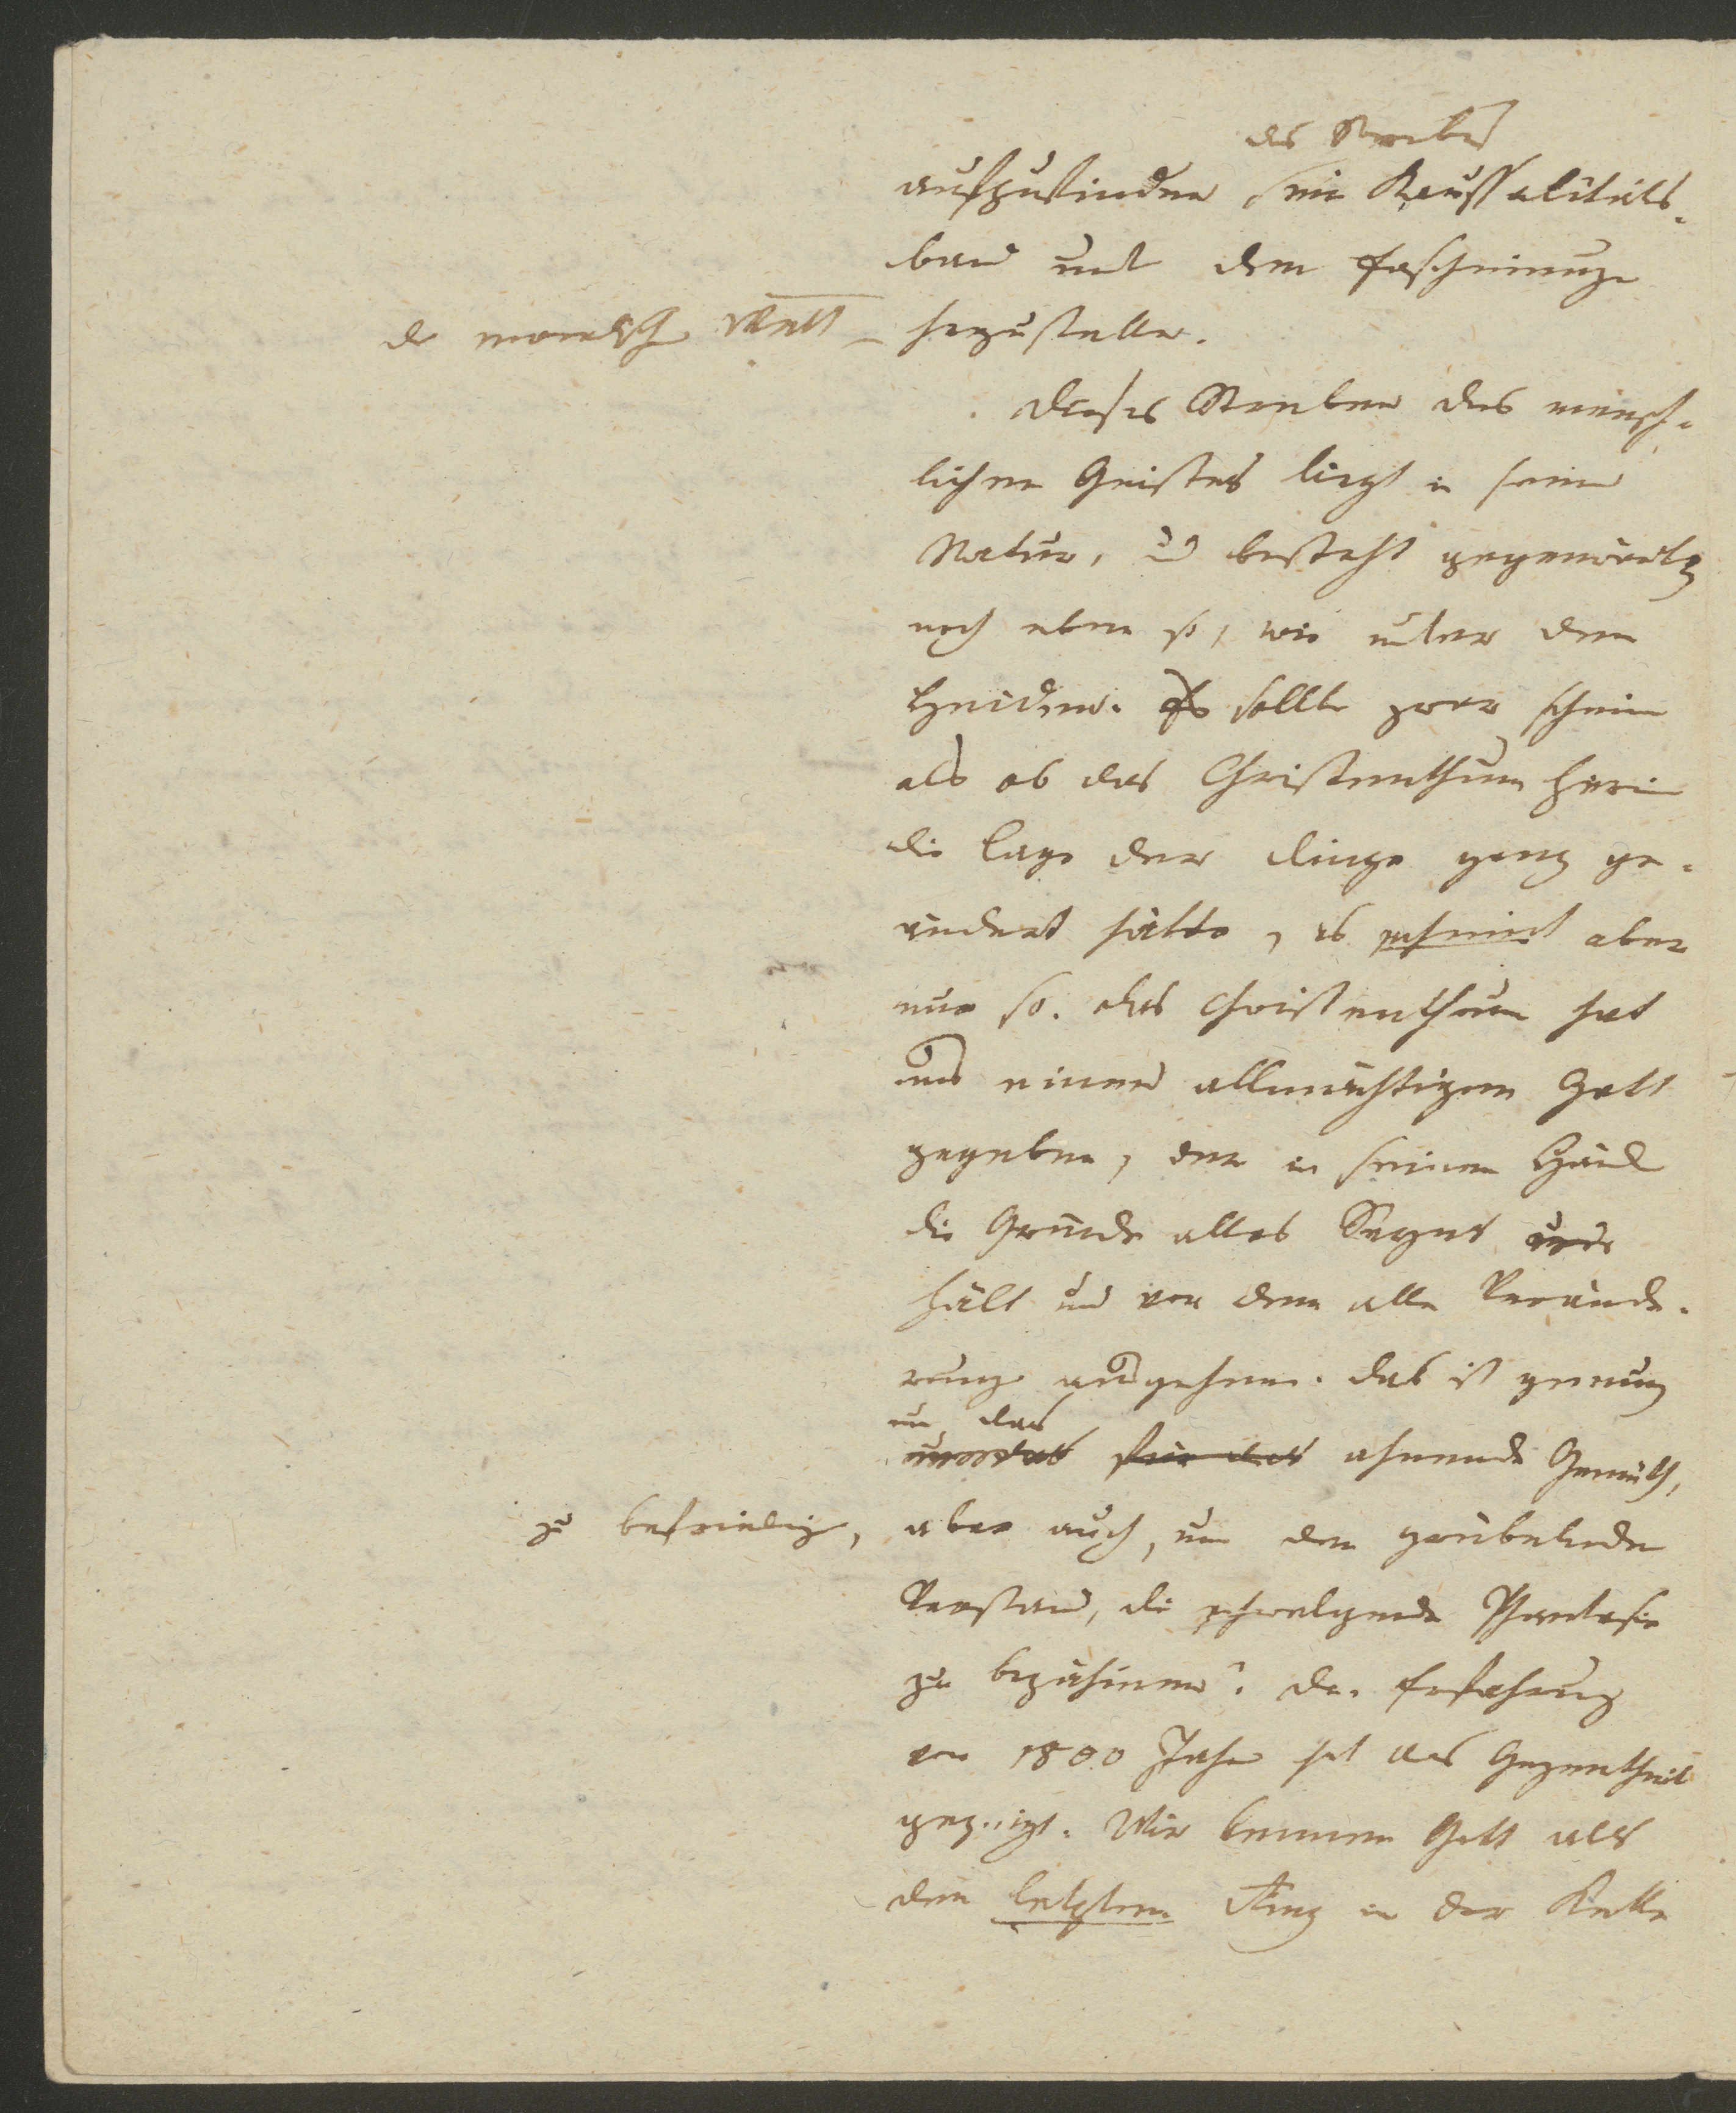 das Streben
aufzufinden, ein Kaussalitäts-
band mit den Erscheinunge
der moralisch Welt herzustellen.
Dieses Streben des mensch-
lichen Geistes liegt in seiner
Natur, und besteht gegenwärtig
noch eben so, wie unter den
Heiden. Es sollte zwar scheinen
als ob das Christenthum hierin
die Lage der Dinge ganz ge-
ändert hätte, es scheint aber
nur so. Das Christenthum hat
uns einen allmächtigen Gott
gegeben, der in seinen Händ
die Gründe alles Seyns
hält und von dem alle Verände-
runge ausgehen. Das ist genug
um das
für das ahnende Gemüth,
zu befriedig, aber auch, um den grübelnden
Verstand, die schwelgende Phantasie
zu bezähmen? Die Erfahrung
von 1800 Jahr hat das Gegentheil
gezeigt. Wir kennen Gott als
den letzten Ring in der Kette